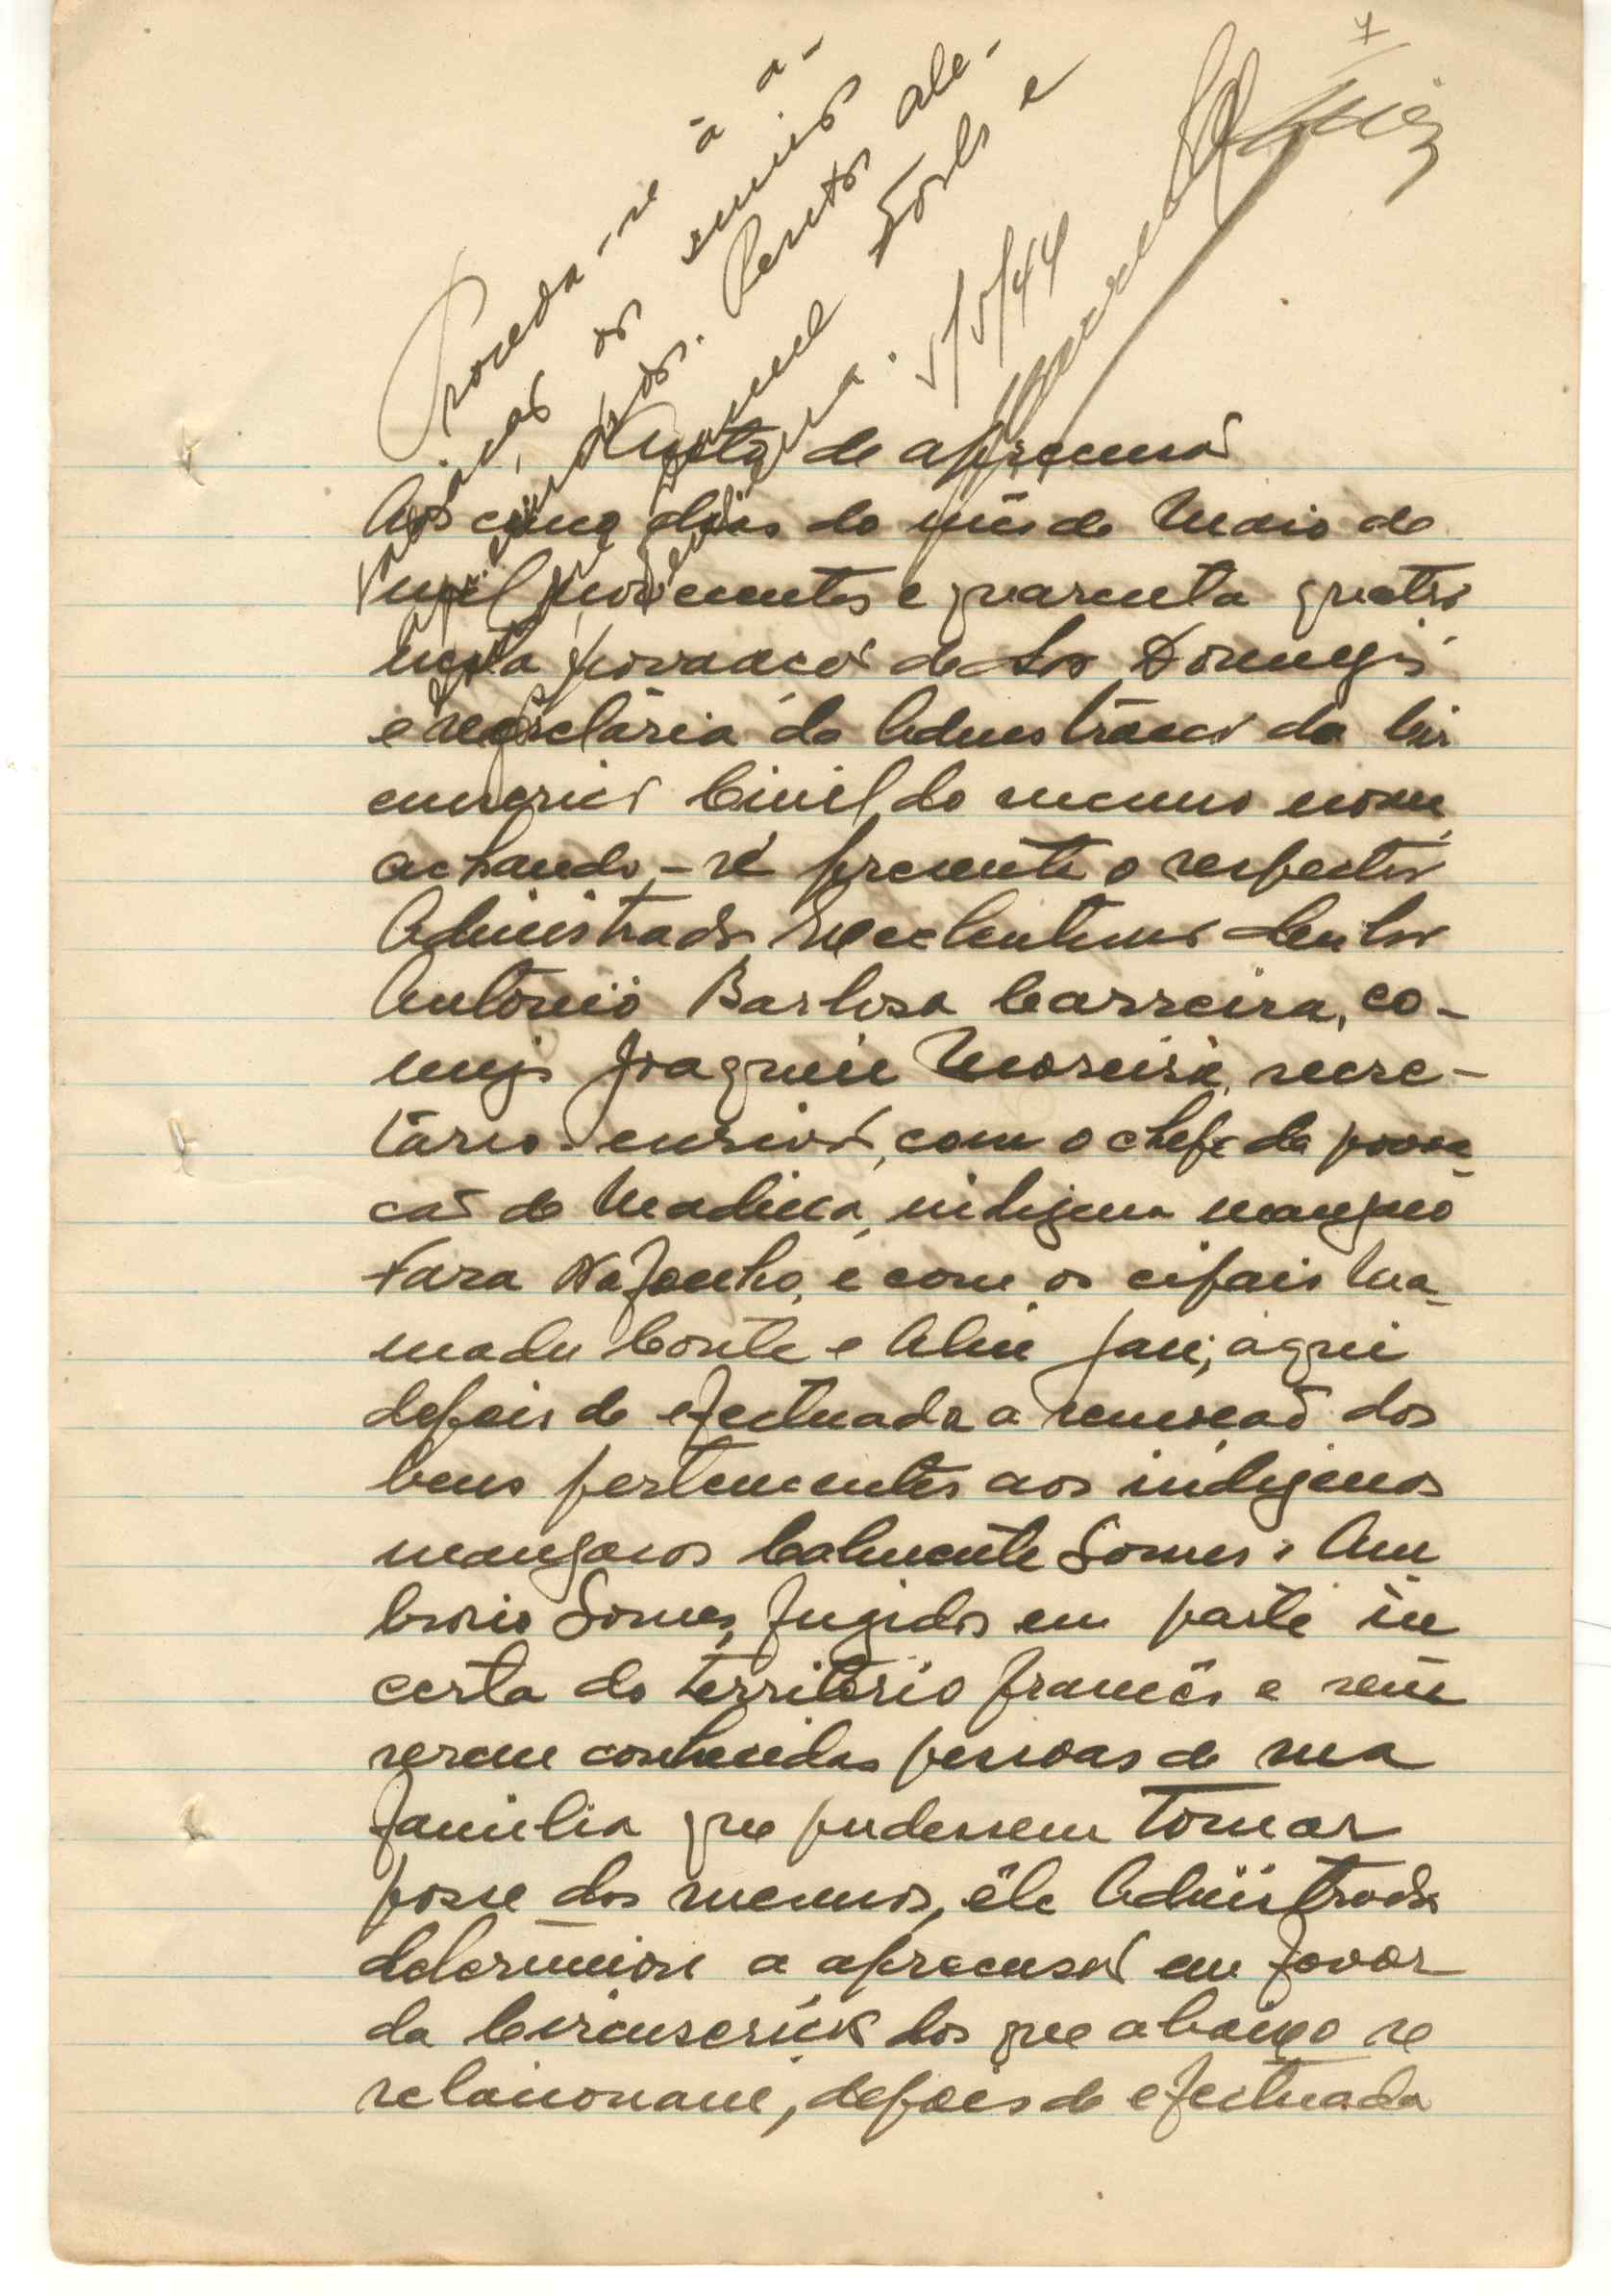 7
Proceda-se à a-
valiação
os semi
Peritos ale-
e
5/5/44
Auto de apreensão
Aos cinco dias do mês de Maio de
mil novecentos e quarenta quatro
nesta povoação de São Domingos
e secretária da Admnistração da Cir
cunscrição Civil do mesmo nome,
achando-se presente o respectivo
Administrador Excelentissimo Senhor
António Barbosa Carreira, co-
migo Joaquim Moreira, secre-
tário-escrivão, com o chefe da povoa-
ção de Madina, indigena manjaco
Fara Nafantcho, e com os cipais Ma-
madu Conté e Aliu Jau, aqui
depois de efectuada a remoção dos
bens pertencentes aos indigenas
manjacos Calmente Gomes e Am
brosio Gomes, fugidos em parte in
certa do território francês e sem
serem conhecidas pessoas de sua
familia que pudessem tomar
posse dos mesmos, êle Administrador
determinou a apreensão em favor
da Circunscrição dos que abaixo se
relacionam, depois de efectuada